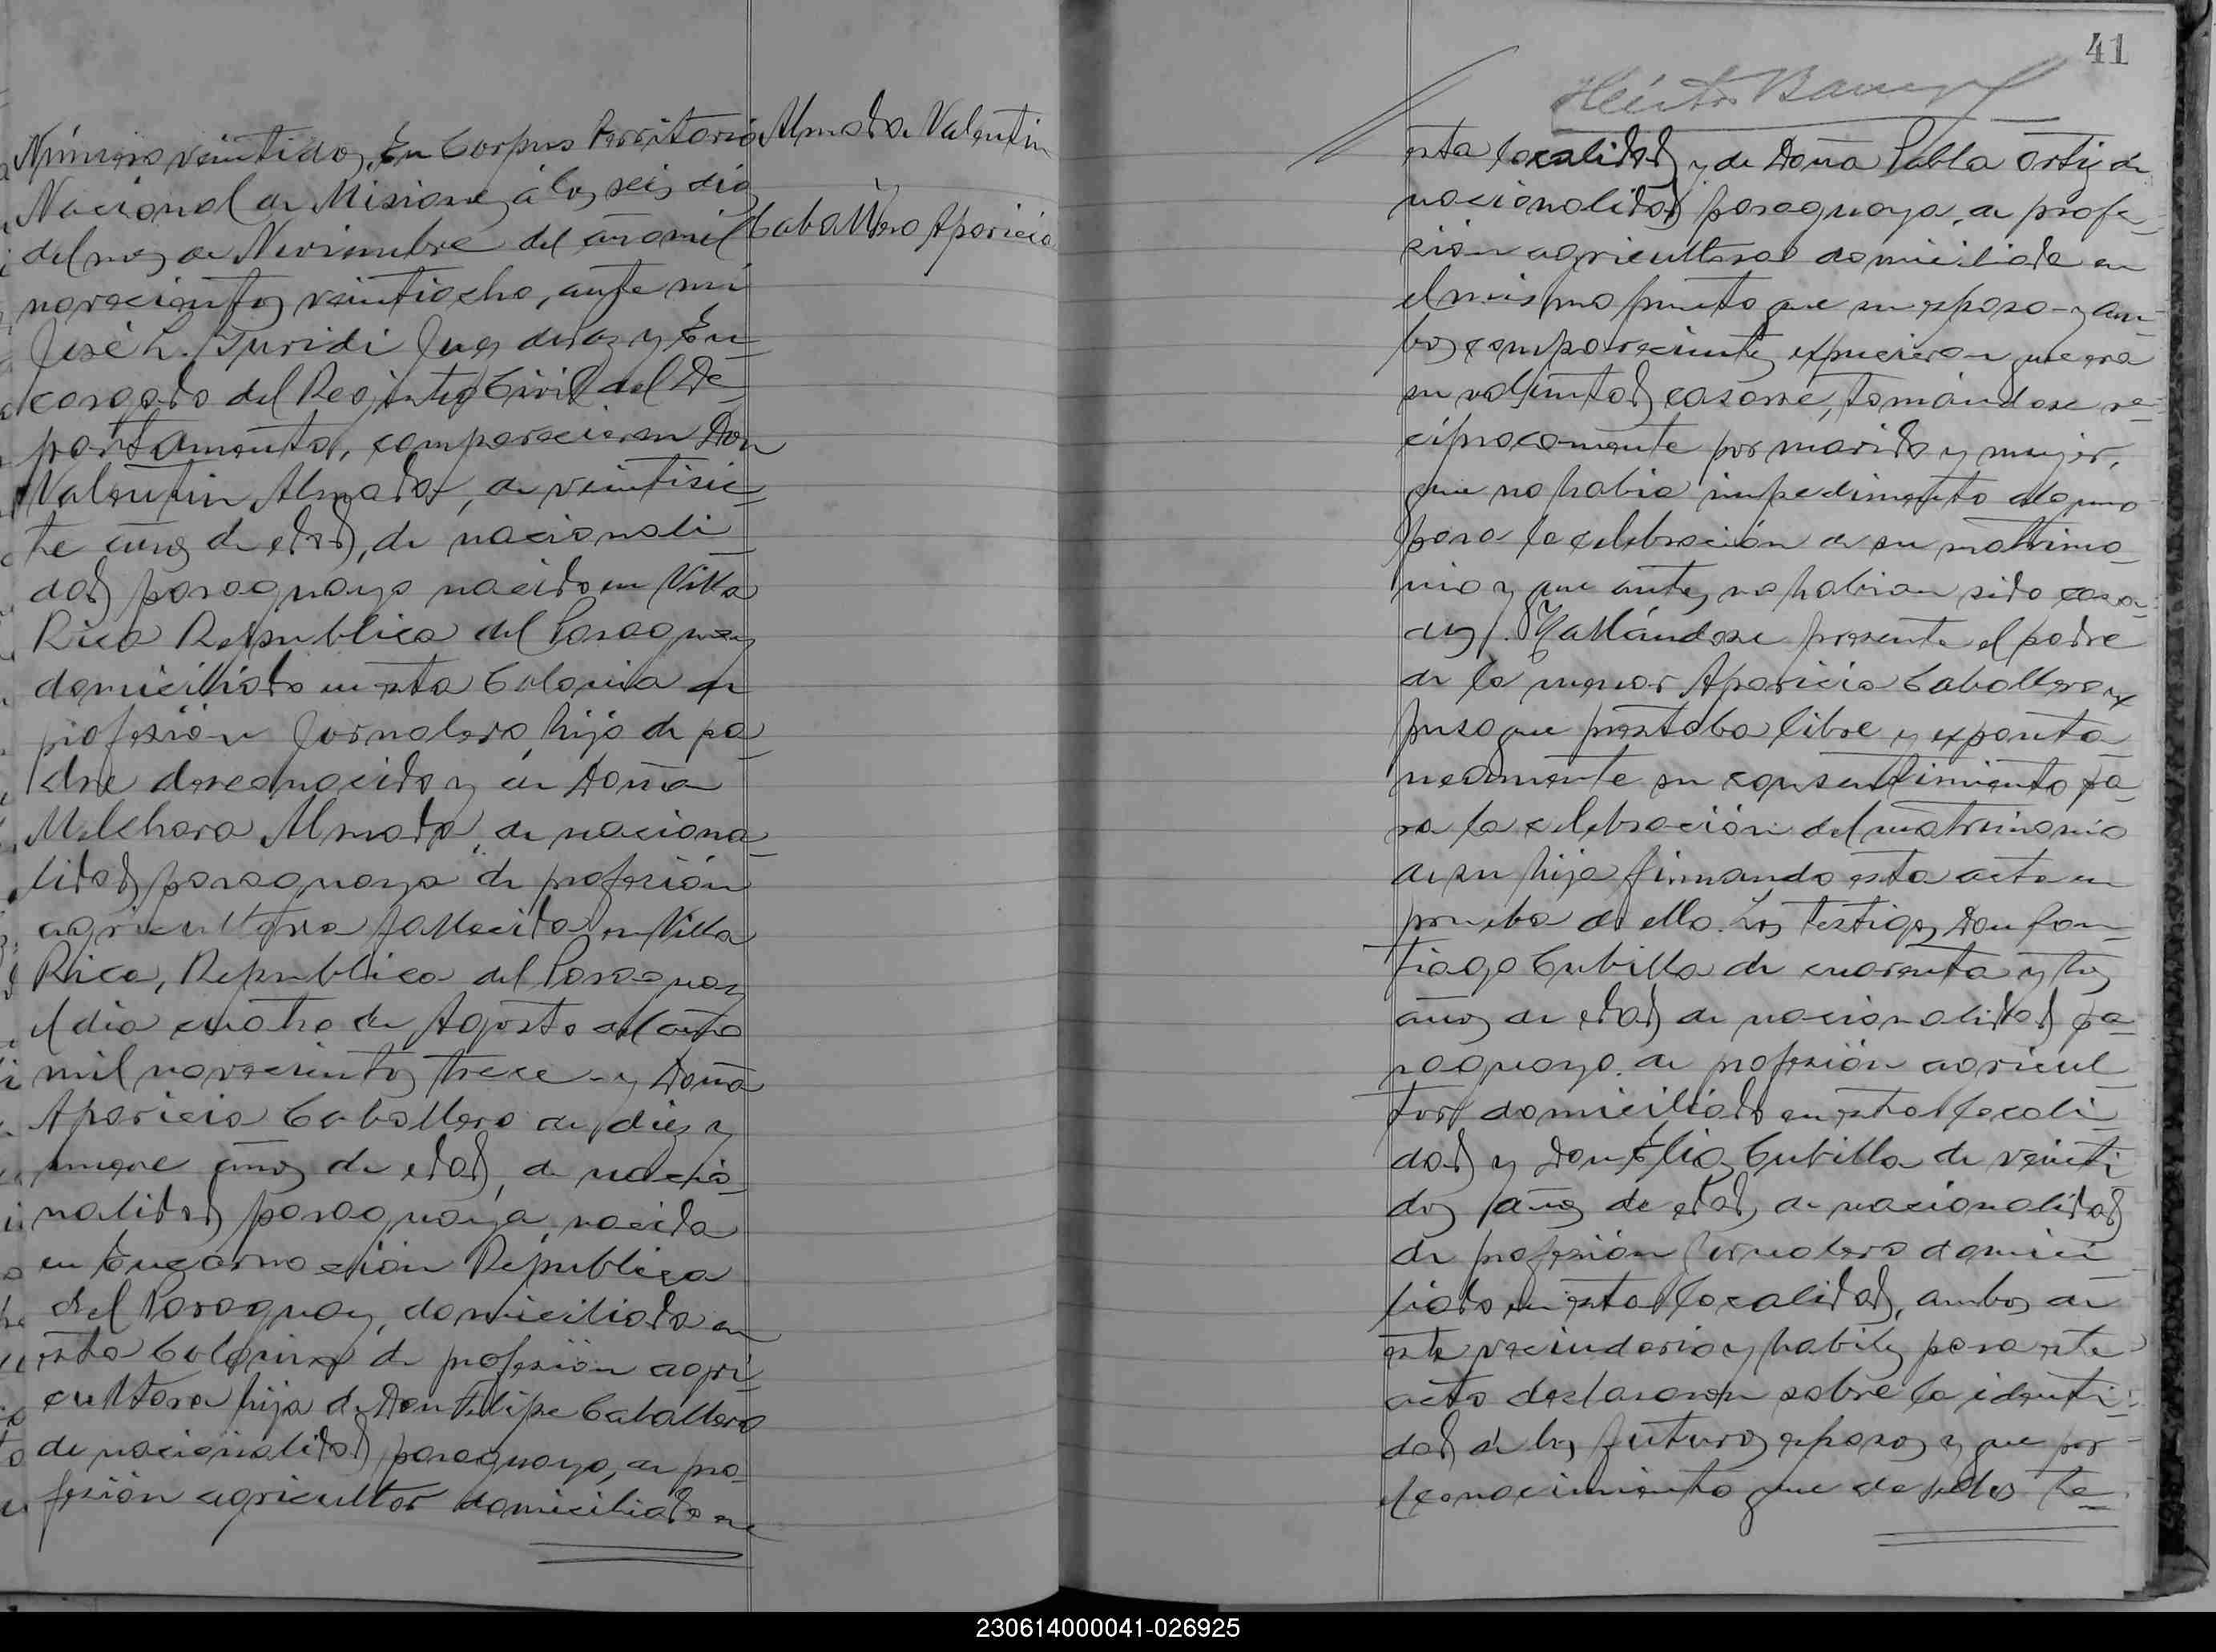 Número veintidos, En Corpus Territorio
Nacional de Misiones á los seis dias
del mes de Noviembre del año mil
novecientos veintiocho, ante mi
José L. Turidi Juez de Paz y En-
cargado del Registro Civil del De-
partamento, comparecieron Don
Valentin Almada, de veintisie-
te años de edad, de nacionali-
dad paraguaya nacido en Villa
Rica Republica del Paraguay
domiciliado en esta Colonia de
profesión Jornalero, hijo de pa-
dre desconocido y de Doña
Melchora Almada, de naciona-
lidad paraguaya de profesión
agricultora fallecida en Villa
Rica, Republica del Paraguay
el dia cuatro de Agosto del año
mil novecientos trece - y Doña
Aparicia Caballero de diez y
nueve años de edad, de nacio-
nalidad paraguaya, nacida
en Encarnación República
del Paraguay, domiciliada en
esta Colonia de profesión agri-
cultora hija de Don Felipe Caballero
de nacionalidad paraguayo, de pro-
fesión agricultor domiciliado en
Almada Valentin
Caballero Aparicia
41
Héctor
esta localidad y de Doña Pabla Ortiz de
nacionalidad paraguaya, de profe-
sión agricultora domiciliada en
el mismo punto que su esposo - y am-
bos comparecientes expusieron que era
su voluntad casarse, tomándose re-
ciprocamente por marido y mujer,
que no habia impedimento alguno
para la celebración de su matrimo-
nio y que antes no habian sido casa-
dos. Hallándose presente el padre
de la menor Aparicia Caballero ex-
puso que prestaba libre y esponta-
neamente su consentimiento pa-
ra la celebración del matrimonio
de su hija firmando esta acta en
prueba de ello. Los testigos Don San-
tiago Cubilla de cuarenta y tres
años de edad de nacionalidad pa-
raguaya de profesión agricul-
tor domiciliado en esta locali-
dad y Don Elias Cubilla de veinti-
dos años de edad, de nacionalidad
de profesión Jornalero domici-
liado en esta localidad, ambos de
este vecindario y habiles para este
acto declararon sobre la identi-
dad de los futuros esposos y que por
el conocimiento que de ellos te-
230614000041-026925